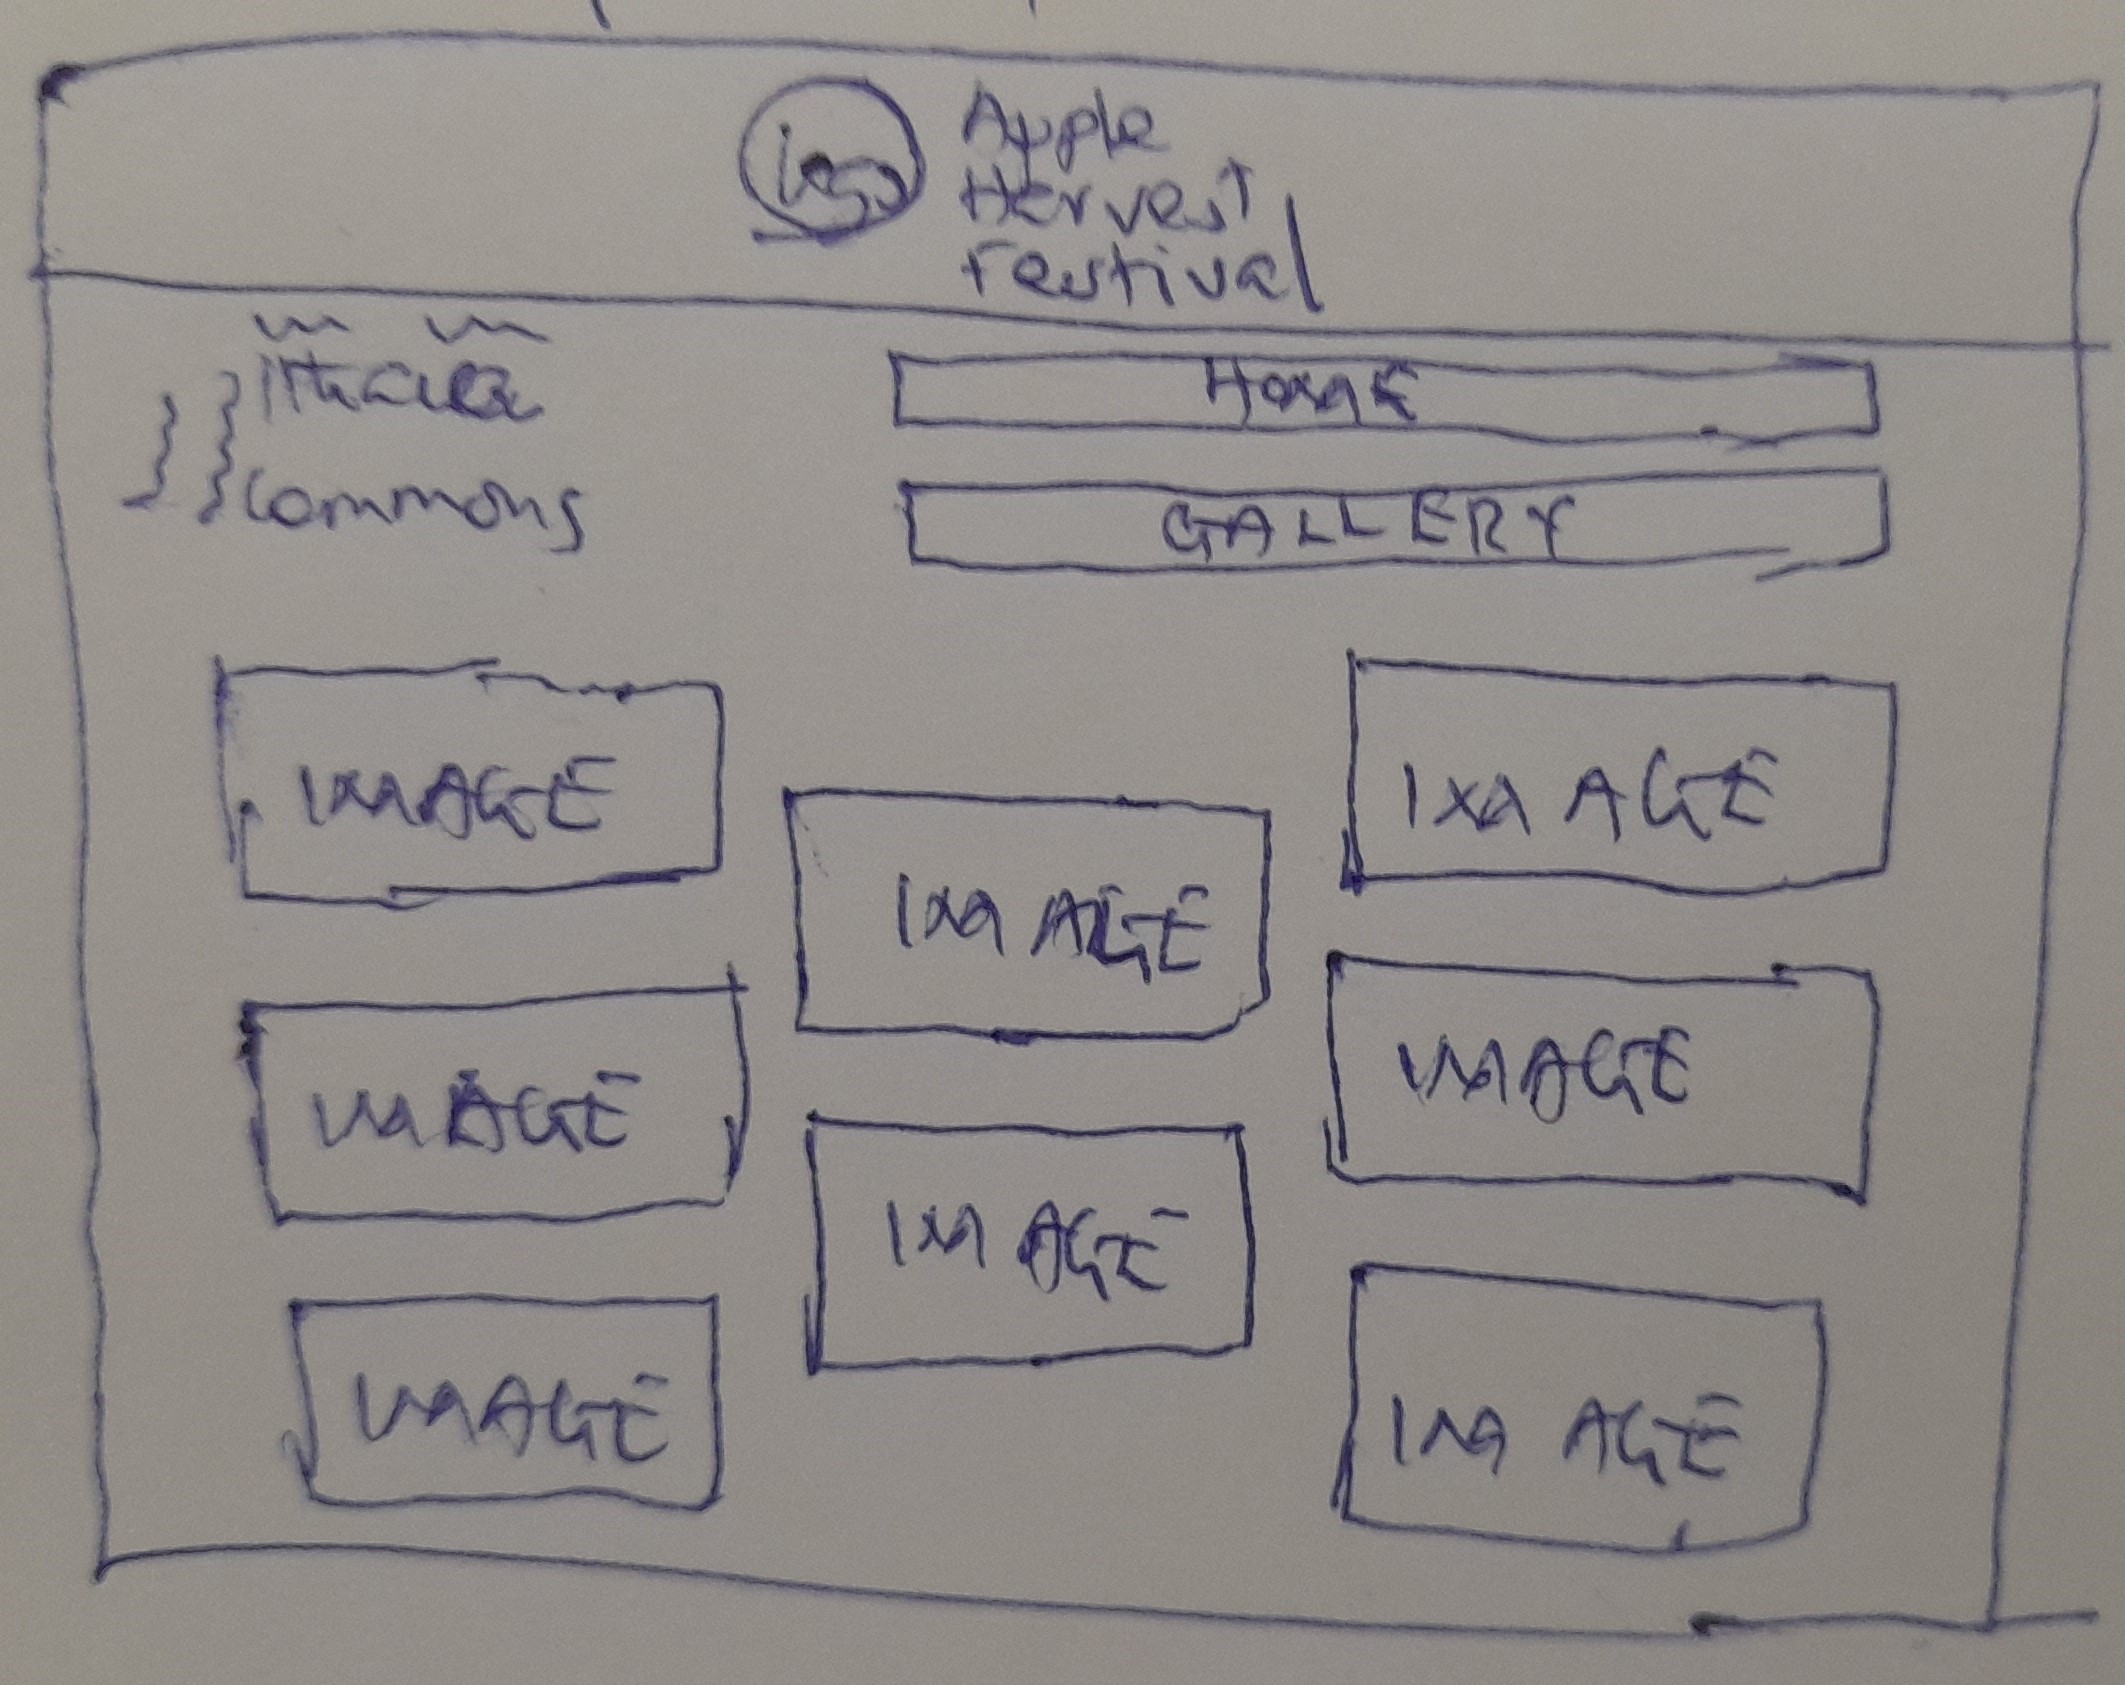 Apple
Harvest
Festival
Ithaca
Commons
HOME
GALLERY
IMAGE
IMAGE
IMAGE
IMAGE
IMAGE
IMAGE
IMAGE
IMAGE